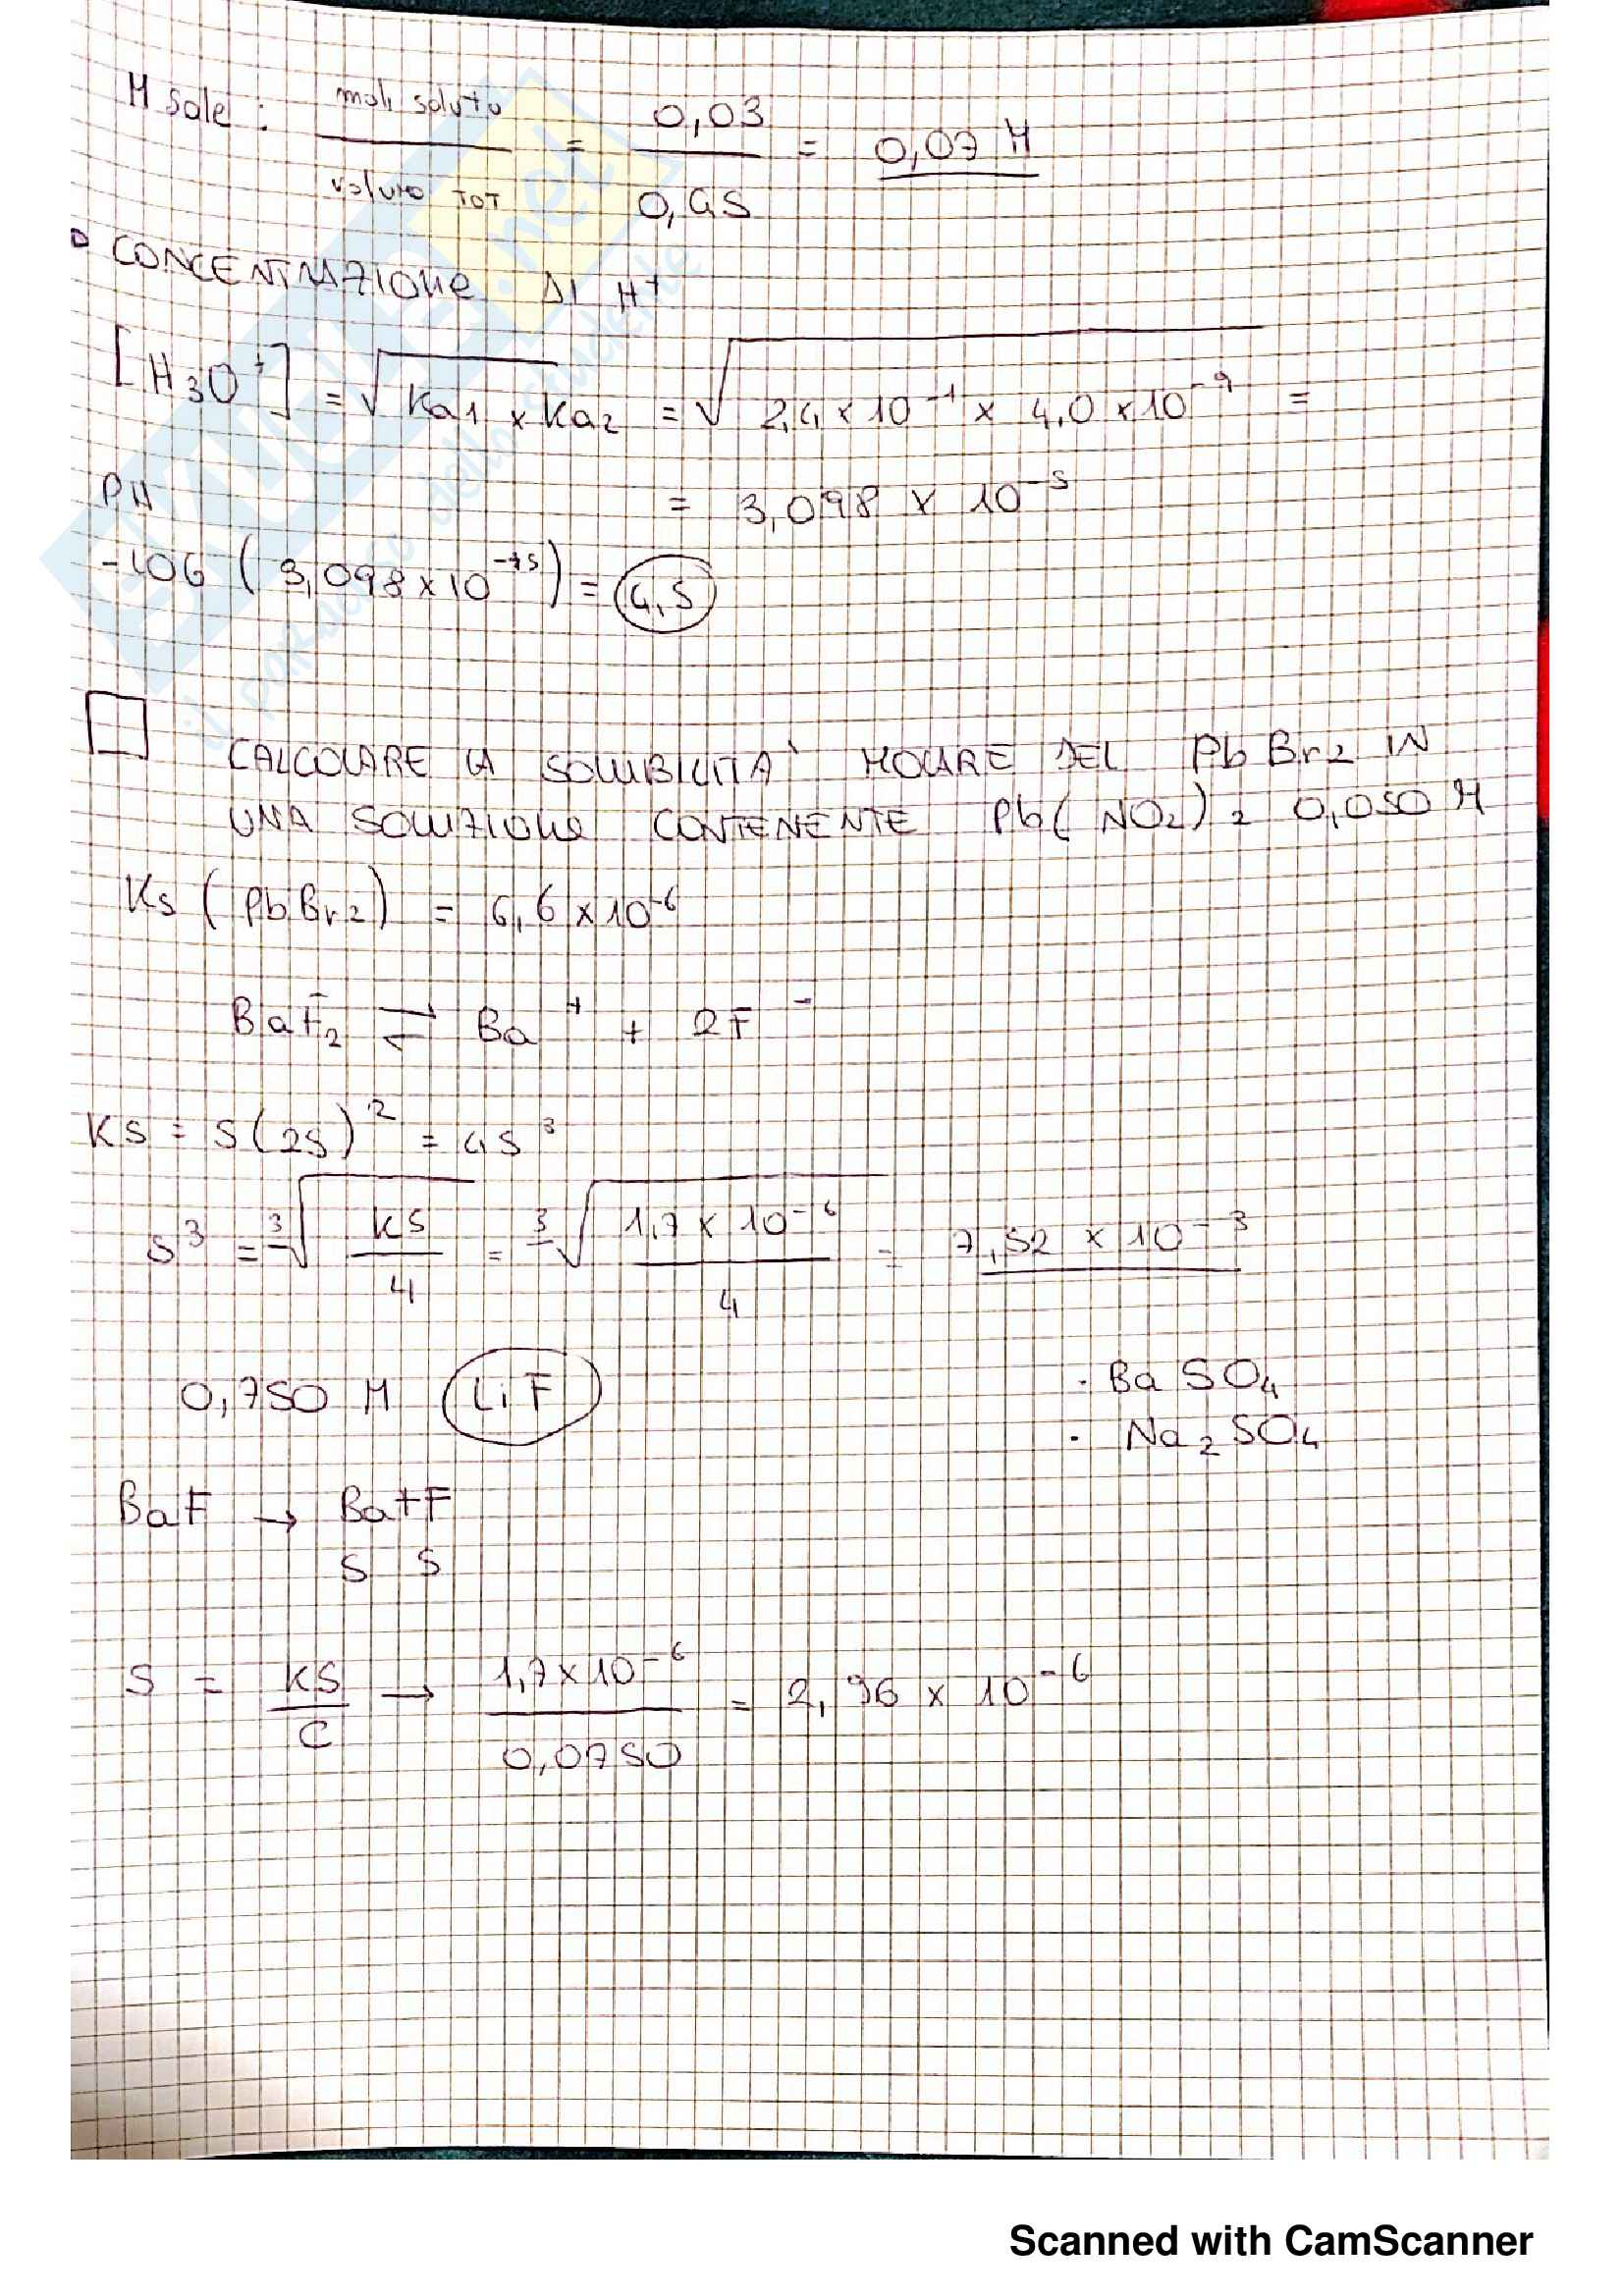 M sale : moli soluto / volume TOT = 0,03 / 0,45 = 0,07 M
CONCENTRAZIONE DI H+
[H3O+] = √Ka1 x Ka2 = √2,4 x 10-1 x 4,0 x 10-9 =
= 3,098 x 10-5
PH
-LOG (3,098 x 10-5) = 4,5
CALCOLARE LA SOLUBILITA' MOLARE DEL PbBr2 IN
UNA SOLUZIONE CONTENENTE Pb(NO2)2 0,050 M
Ks (PbBr2) = 6,6 x 10-6
BaF2 ⇌ Ba+ + 2F-
KS = S(2S)2 = 4S3
S3 = 3√KS/4 = 3√1,7 x 10-6/4 = 7,52 x 10-3
0,750 M LiF
· BaSO4
· Na2SO4
BaF → Ba+F
S S
S = KS/C → 1,7 x 10-6/0,0750 = 2,96 x 10-6
SKUOLA.net
il paradiso dello studente
Scanned with CamScanner